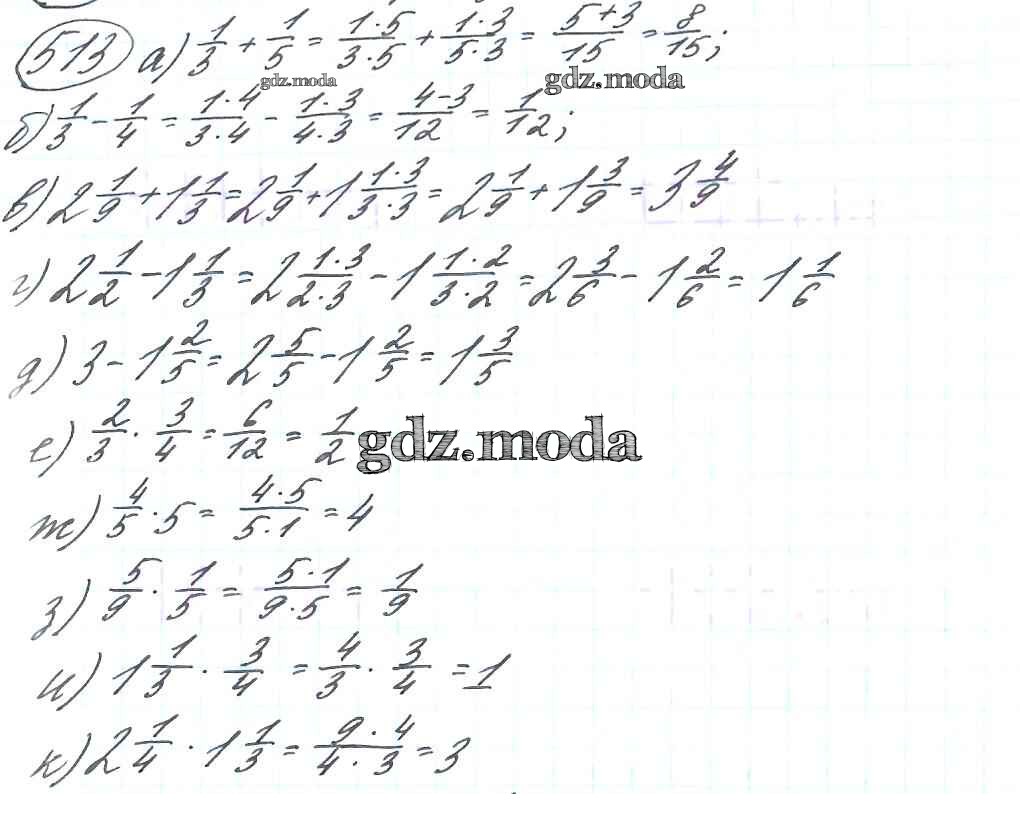 513 а) 1/3 + 1/5 = 1·5/3·5 + 1·3/5·3 = 5+3/15 = 8/15;
gdz.moda gdz.moda
б) 1/3 - 1/4 = 1·4/3·4 - 1·3/4·3 = 4-3/12 = 1/12;
в) 2 1/9 + 1 1/3 = 2 1/9 + 1 1·3/3·3 = 2 1/9 + 1 3/9 = 3 4/9
г) 2 1/2 - 1 1/3 = 2 1·3/2·3 - 1 1·2/3·2 = 2 3/6 - 1 2/6 = 1 1/6
д) 3 - 1 2/5 = 2 5/5 - 1 2/5 = 1 3/5
е) 2/3 · 3/4 = 6/12 = 1/2 gdz.moda
ж) 4/5 · 5 = 4·5/5·1 = 4
з) 5/9 · 1/5 = 5·1/9·5 = 1/9
и) 1 1/3 · 3/4 = 4/3 · 3/4 = 1
к) 2 1/4 · 1 1/3 = 9·4/4·3 = 3